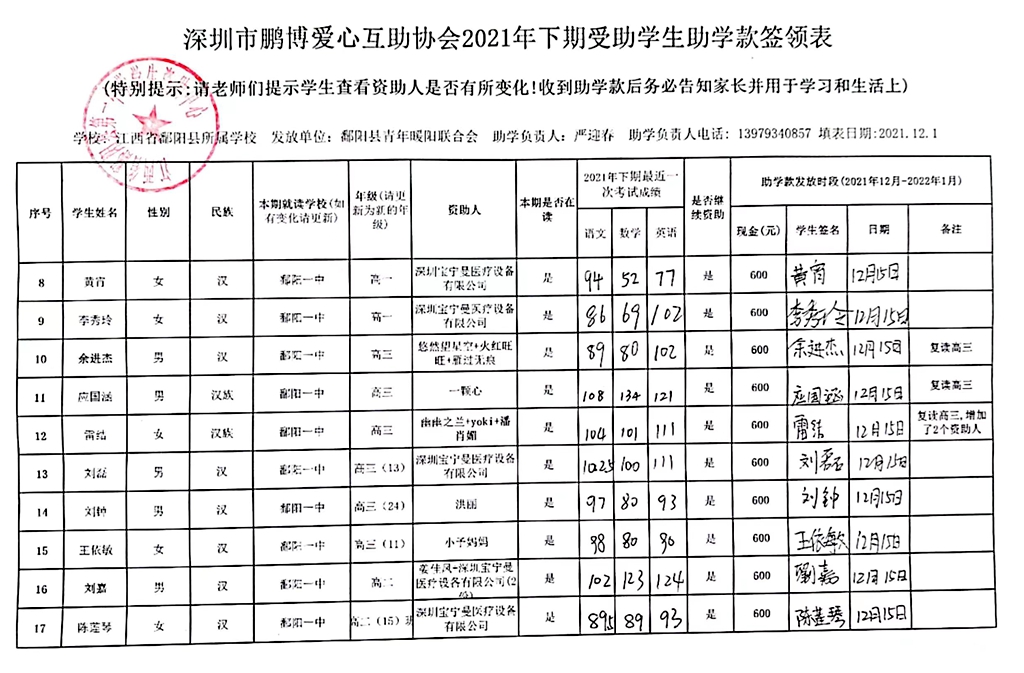 深圳市鹏博爱心互助协会2021年下期受助学生助学款签领表
(特别提示:请老师们提示学生查看资助人是否有所变化!收到助学款后务必告知家长并用于学习和生活上)
学校: 江西省鄱阳县所属学校 发放单位: 鄱阳县青年暖阳联合会 助学负责人: 严迎春 助学负责人电话: 13979340857 填表日期:2021.12.1
序号 学生姓名 性别 民族 本期就读学校(如有变化请更新) 年级(请更新为新的年级) 资助人 本期是否在读 2021年下期最近一次考试成绩 是否继续资助 助学款发放时段(2021年12月-2022年1月)
语文 数学 英语 现金(元) 学生签名 日期 备注
8 黄宵 女 汉 鄱阳一中 高一 深圳宝宁曼医疗设备有限公司 是 94 52 77 是 600 黄宵 12月15日
9 李秀玲 女 汉 鄱阳一中 高一 深圳宝宁曼医疗设备有限公司 是 86 69 102 是 600 李秀玲 12月15日
10 余进杰 男 汉 鄱阳一中 高三 悠然望星空+火红旺旺+雁过无痕 是 89 80 102 是 600 余进杰 12月15日 复读高三
11 应国涵 男 汉族 鄱阳一中 高三 一颗心 是 108 134 121 是 600 应国涵 12月15日 复读高三
12 雷结 女 汉族 鄱阳一中 高三 幽幽之兰+yoki+潘肖媚 是 104 101 111 是 600 雷结 12月15日 复读高三,增加了2个资助人
13 刘磊 男 汉 鄱阳一中 高三（13） 深圳宝宁曼医疗设备有限公司 是 102.5 100 111 是 600 刘磊 12月15日
14 刘钟 男 汉 鄱阳一中 高三（24） 洪丽 是 97 80 93 是 600 刘钟 12月15日
15 王依敏 女 汉 鄱阳一中 高三（11） 小予妈妈 是 98 80 90 是 600 王依敏 12月15日
16 刘嘉 男 汉 鄱阳一中 高二 姜生风-深圳宝宁曼医疗设备有限公司(2份) 是 102 123 124 是 600 劉嘉 12月15日
17 陈莲琴 女 汉 鄱阳一中 高二（15）班 深圳宝宁曼医疗设备有限公司 是 89.5 89 93 是 600 陈莲琴 12月15日